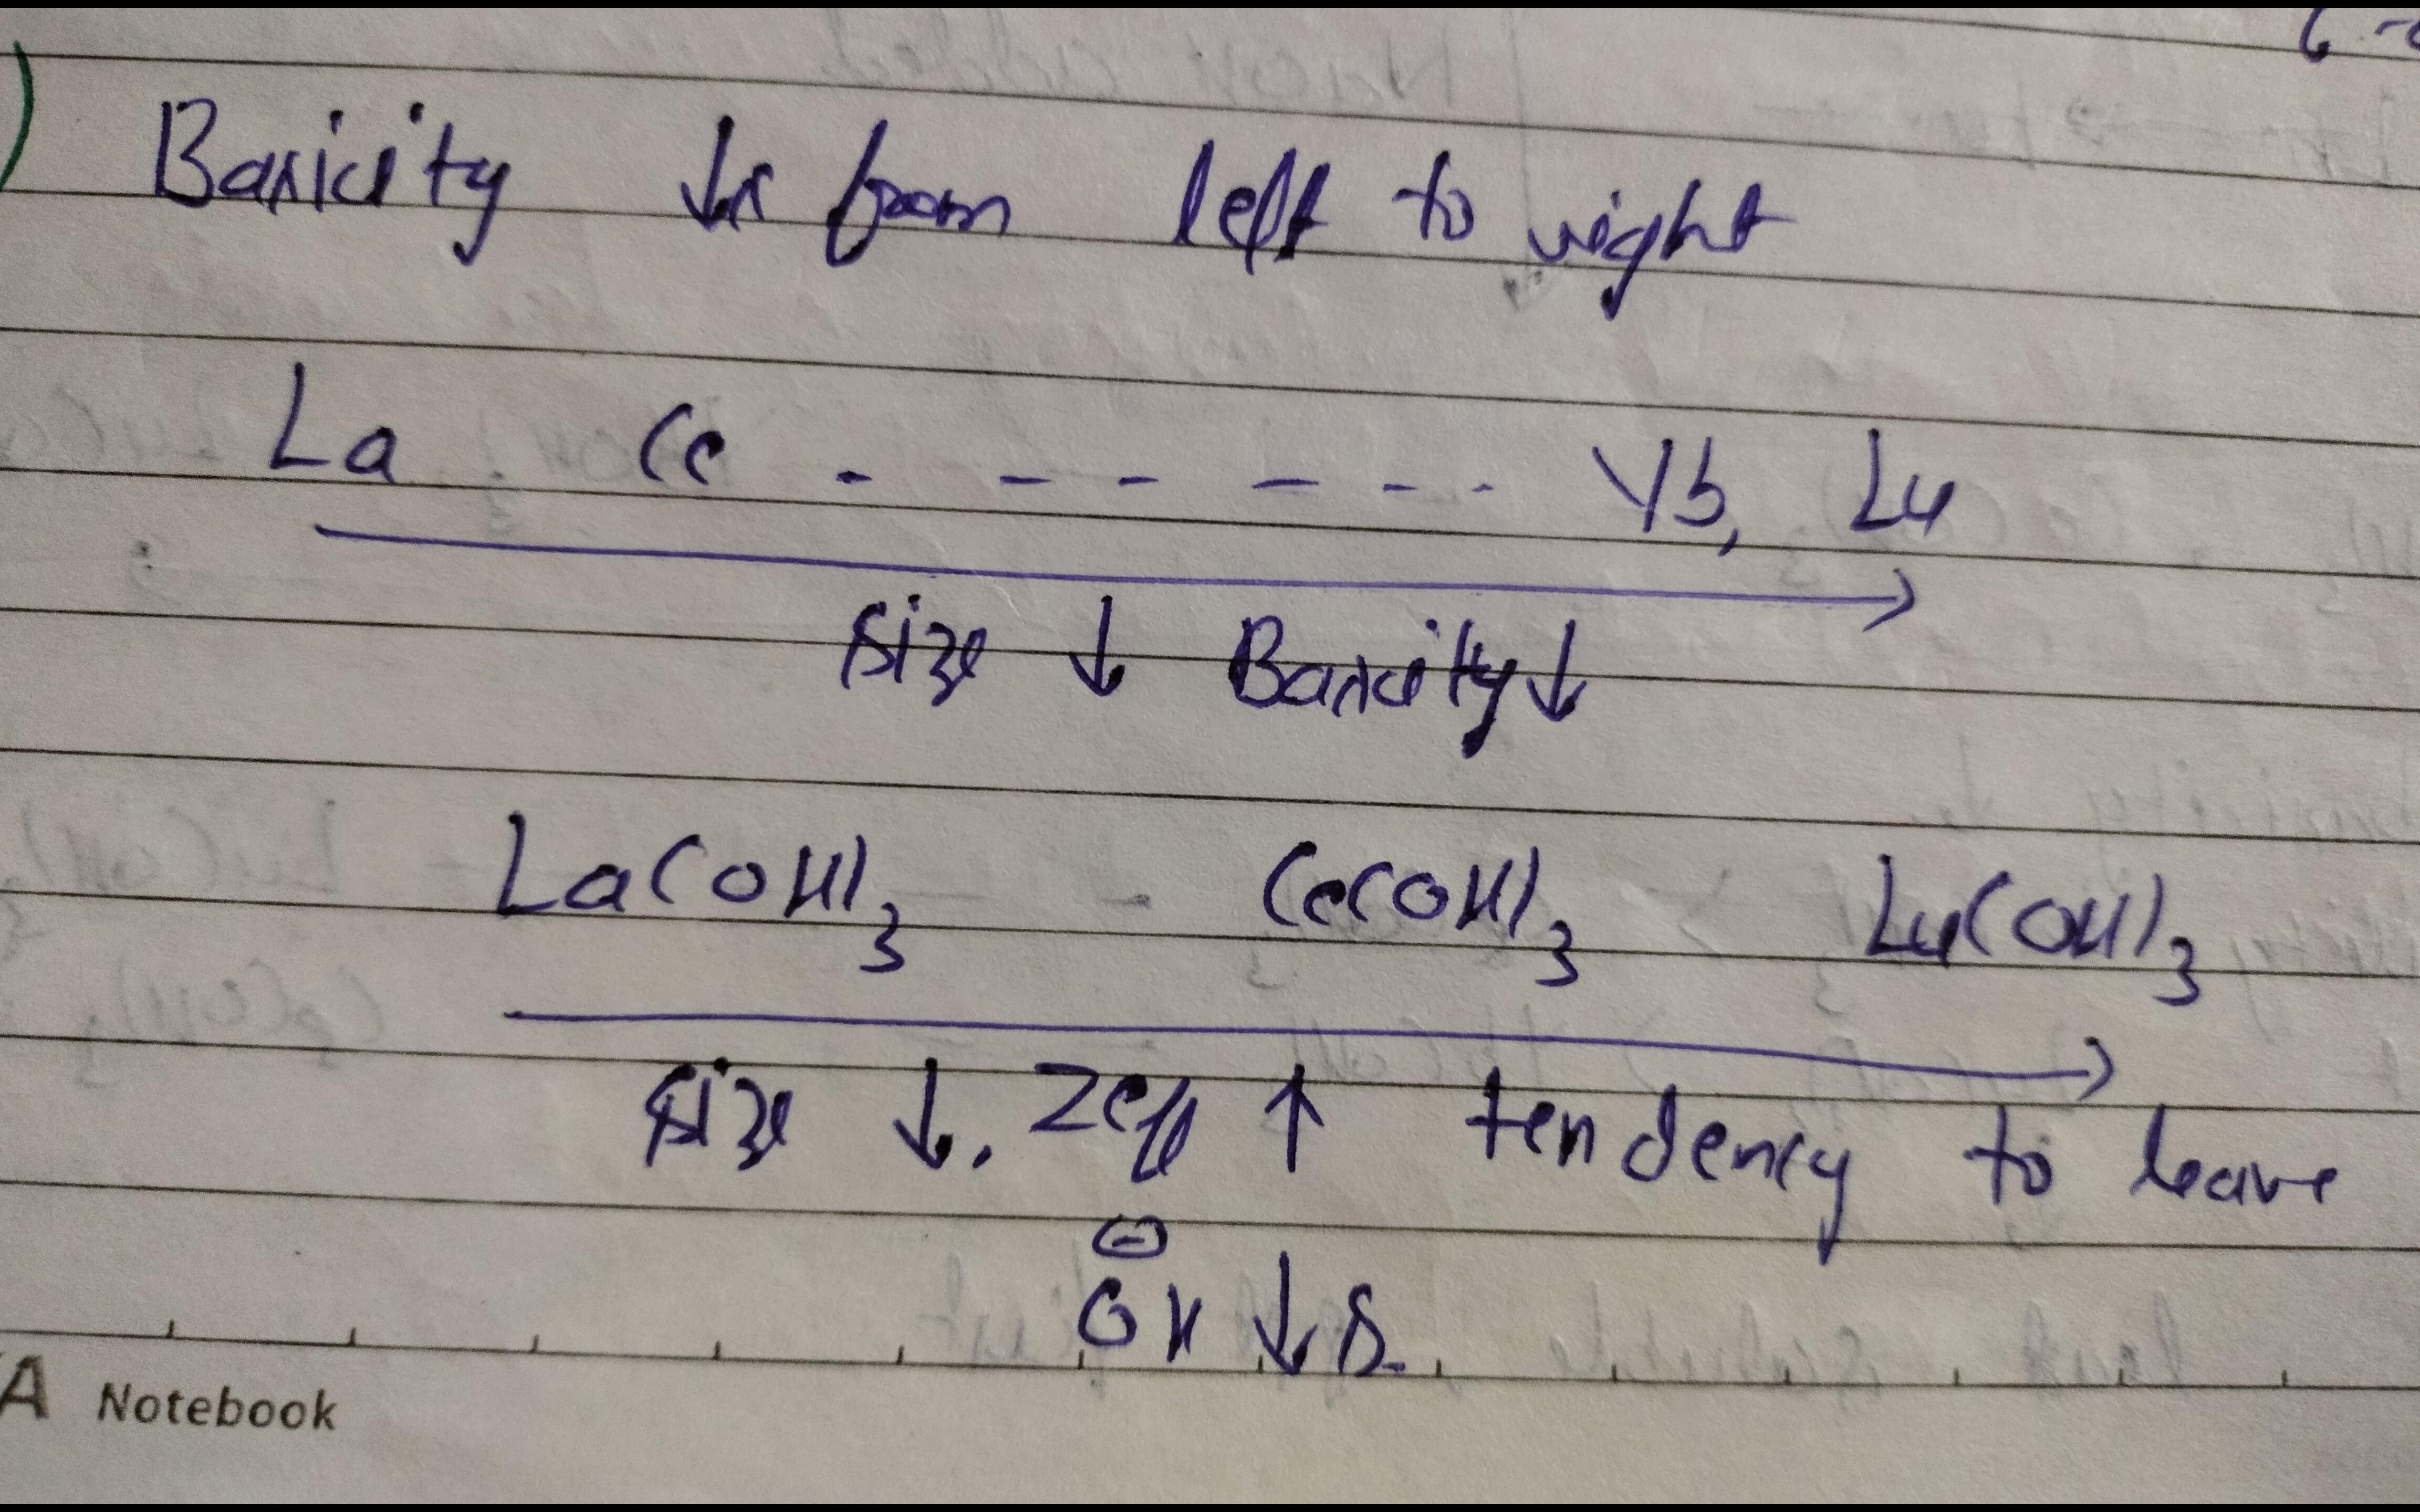 Basicity ↓s from left to right
La Ce - - - - - - Yb, Lu
size ↓ Basicity ↓
La(OH)3 Ce(OH)3 Lu(OH)3
size ↓. Zeff ↑ tendency to leave
⊖
OH ↓s.
A Notebook